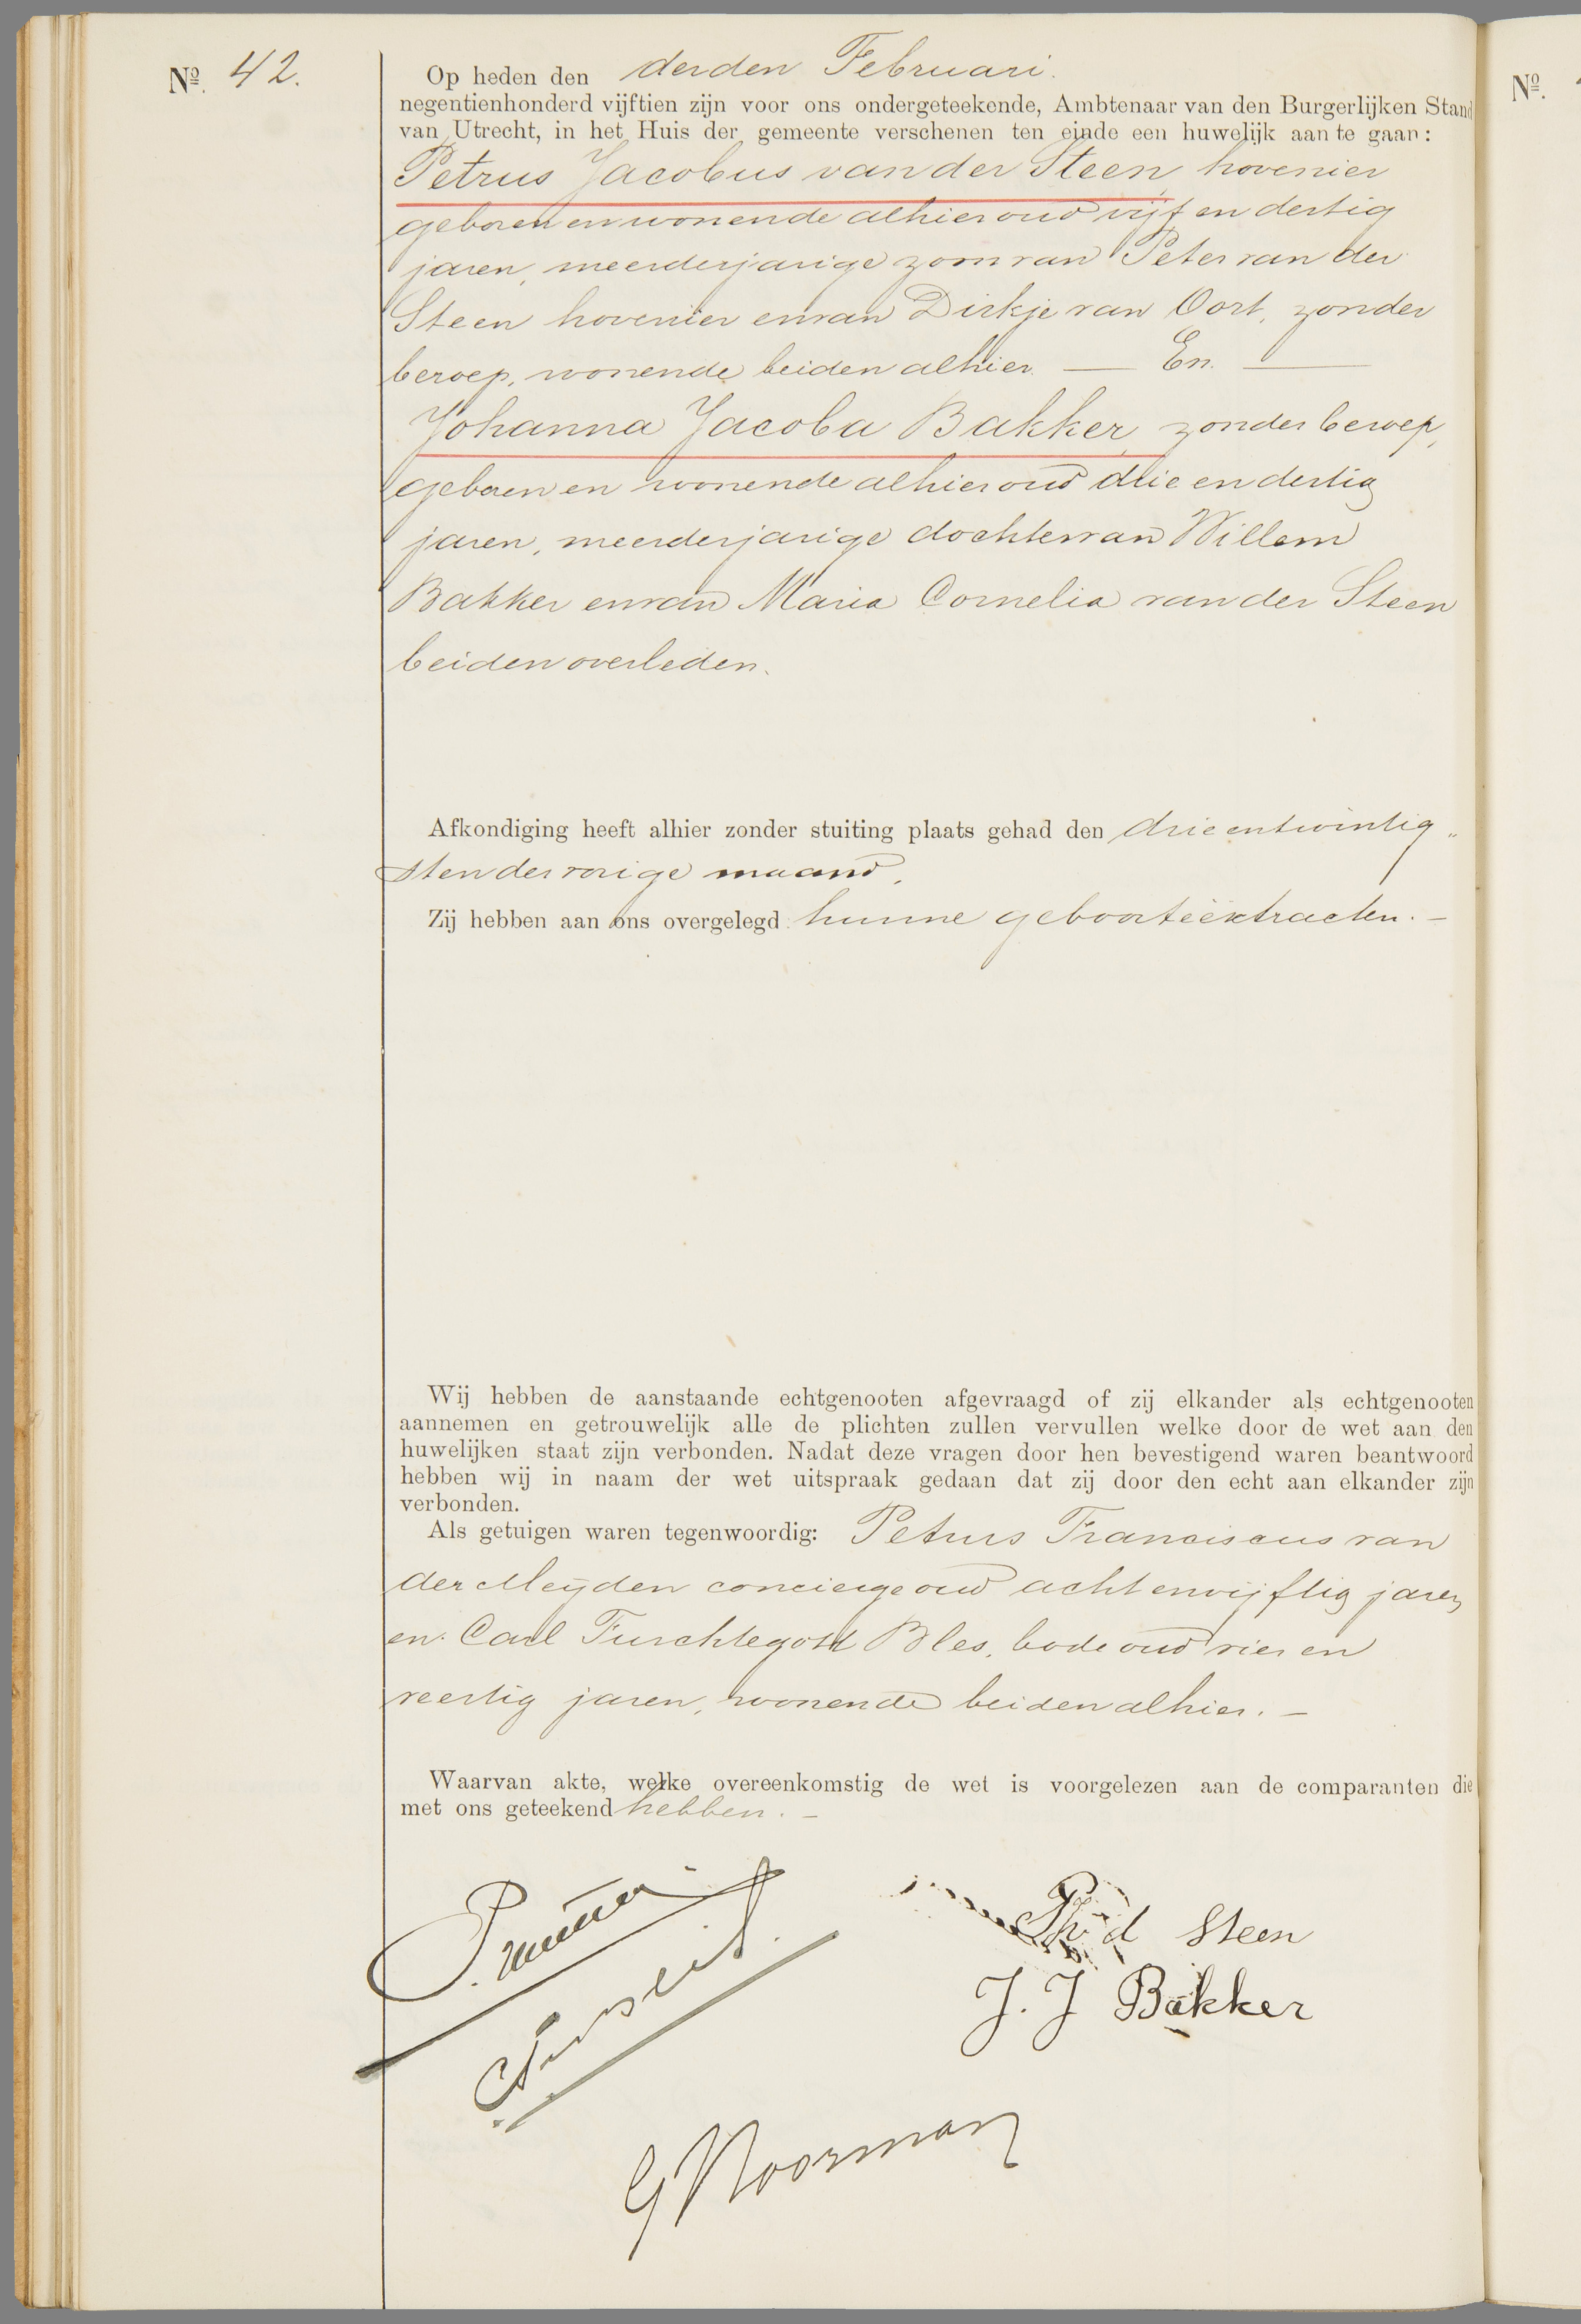 Nº. 42.
Op heden den derden Februari.
negentienhonderd vijftien zijn voor ons ondergeteekende, Ambtenaar van den Burgerlijken Stand
van Utrecht, in het Huis der gemeente verschenen ten einde een huwelijk aan te gaan:
Petrus Jacobus van der Steen, hovenier
geboren en wonende alhier oud vijf en dertig
jaren, meerderjarige zoon van Peter van der
Steen hovenier en van Dirkje van Oort, zonder
beroep, wonende beiden alhier. — En. —
Johanna Jacoba Bakker, zonder beroep,
geboren en wonende alhier oud drie en dertig
jaren, meerderjarige dochter van Willem
Bakker en van Maria Cornelia van der Steen
beiden overleden.
Afkondiging heeft alhier zonder stuiting plaats gehad den drie en twintig„
sten der vorige maand.
Zij hebben aan ons overgelegd hunne geboorteëxtracten. —
Wij hebben de aanstaande echtgenooten afgevraagd of zij elkander als echtgenooten
aannemen en getrouwelijk alle de plichten zullen vervullen welke door de wet aan den
huwelijken staat zijn verbonden. Nadat deze vragen door hen bevestigend waren beantwoord
hebben wij in naam der wet uitspraak gedaan dat zij door den echt aan elkander zijn
verbonden.
Als getuigen waren tegenwoordig: Petrus Franciscus van
der Meijden concierge oud acht en vijftig jaren
en Carl Furchtegott Bles, bode oud vier en
veertig jaren, wonende beiden alhier. —
Waarvan akte, welke overeenkomstig de wet is voorgelezen aan de comparanten die
met ons geteekend hebben. —
d Steen
J. J Bakker
G Noorman
Nº.